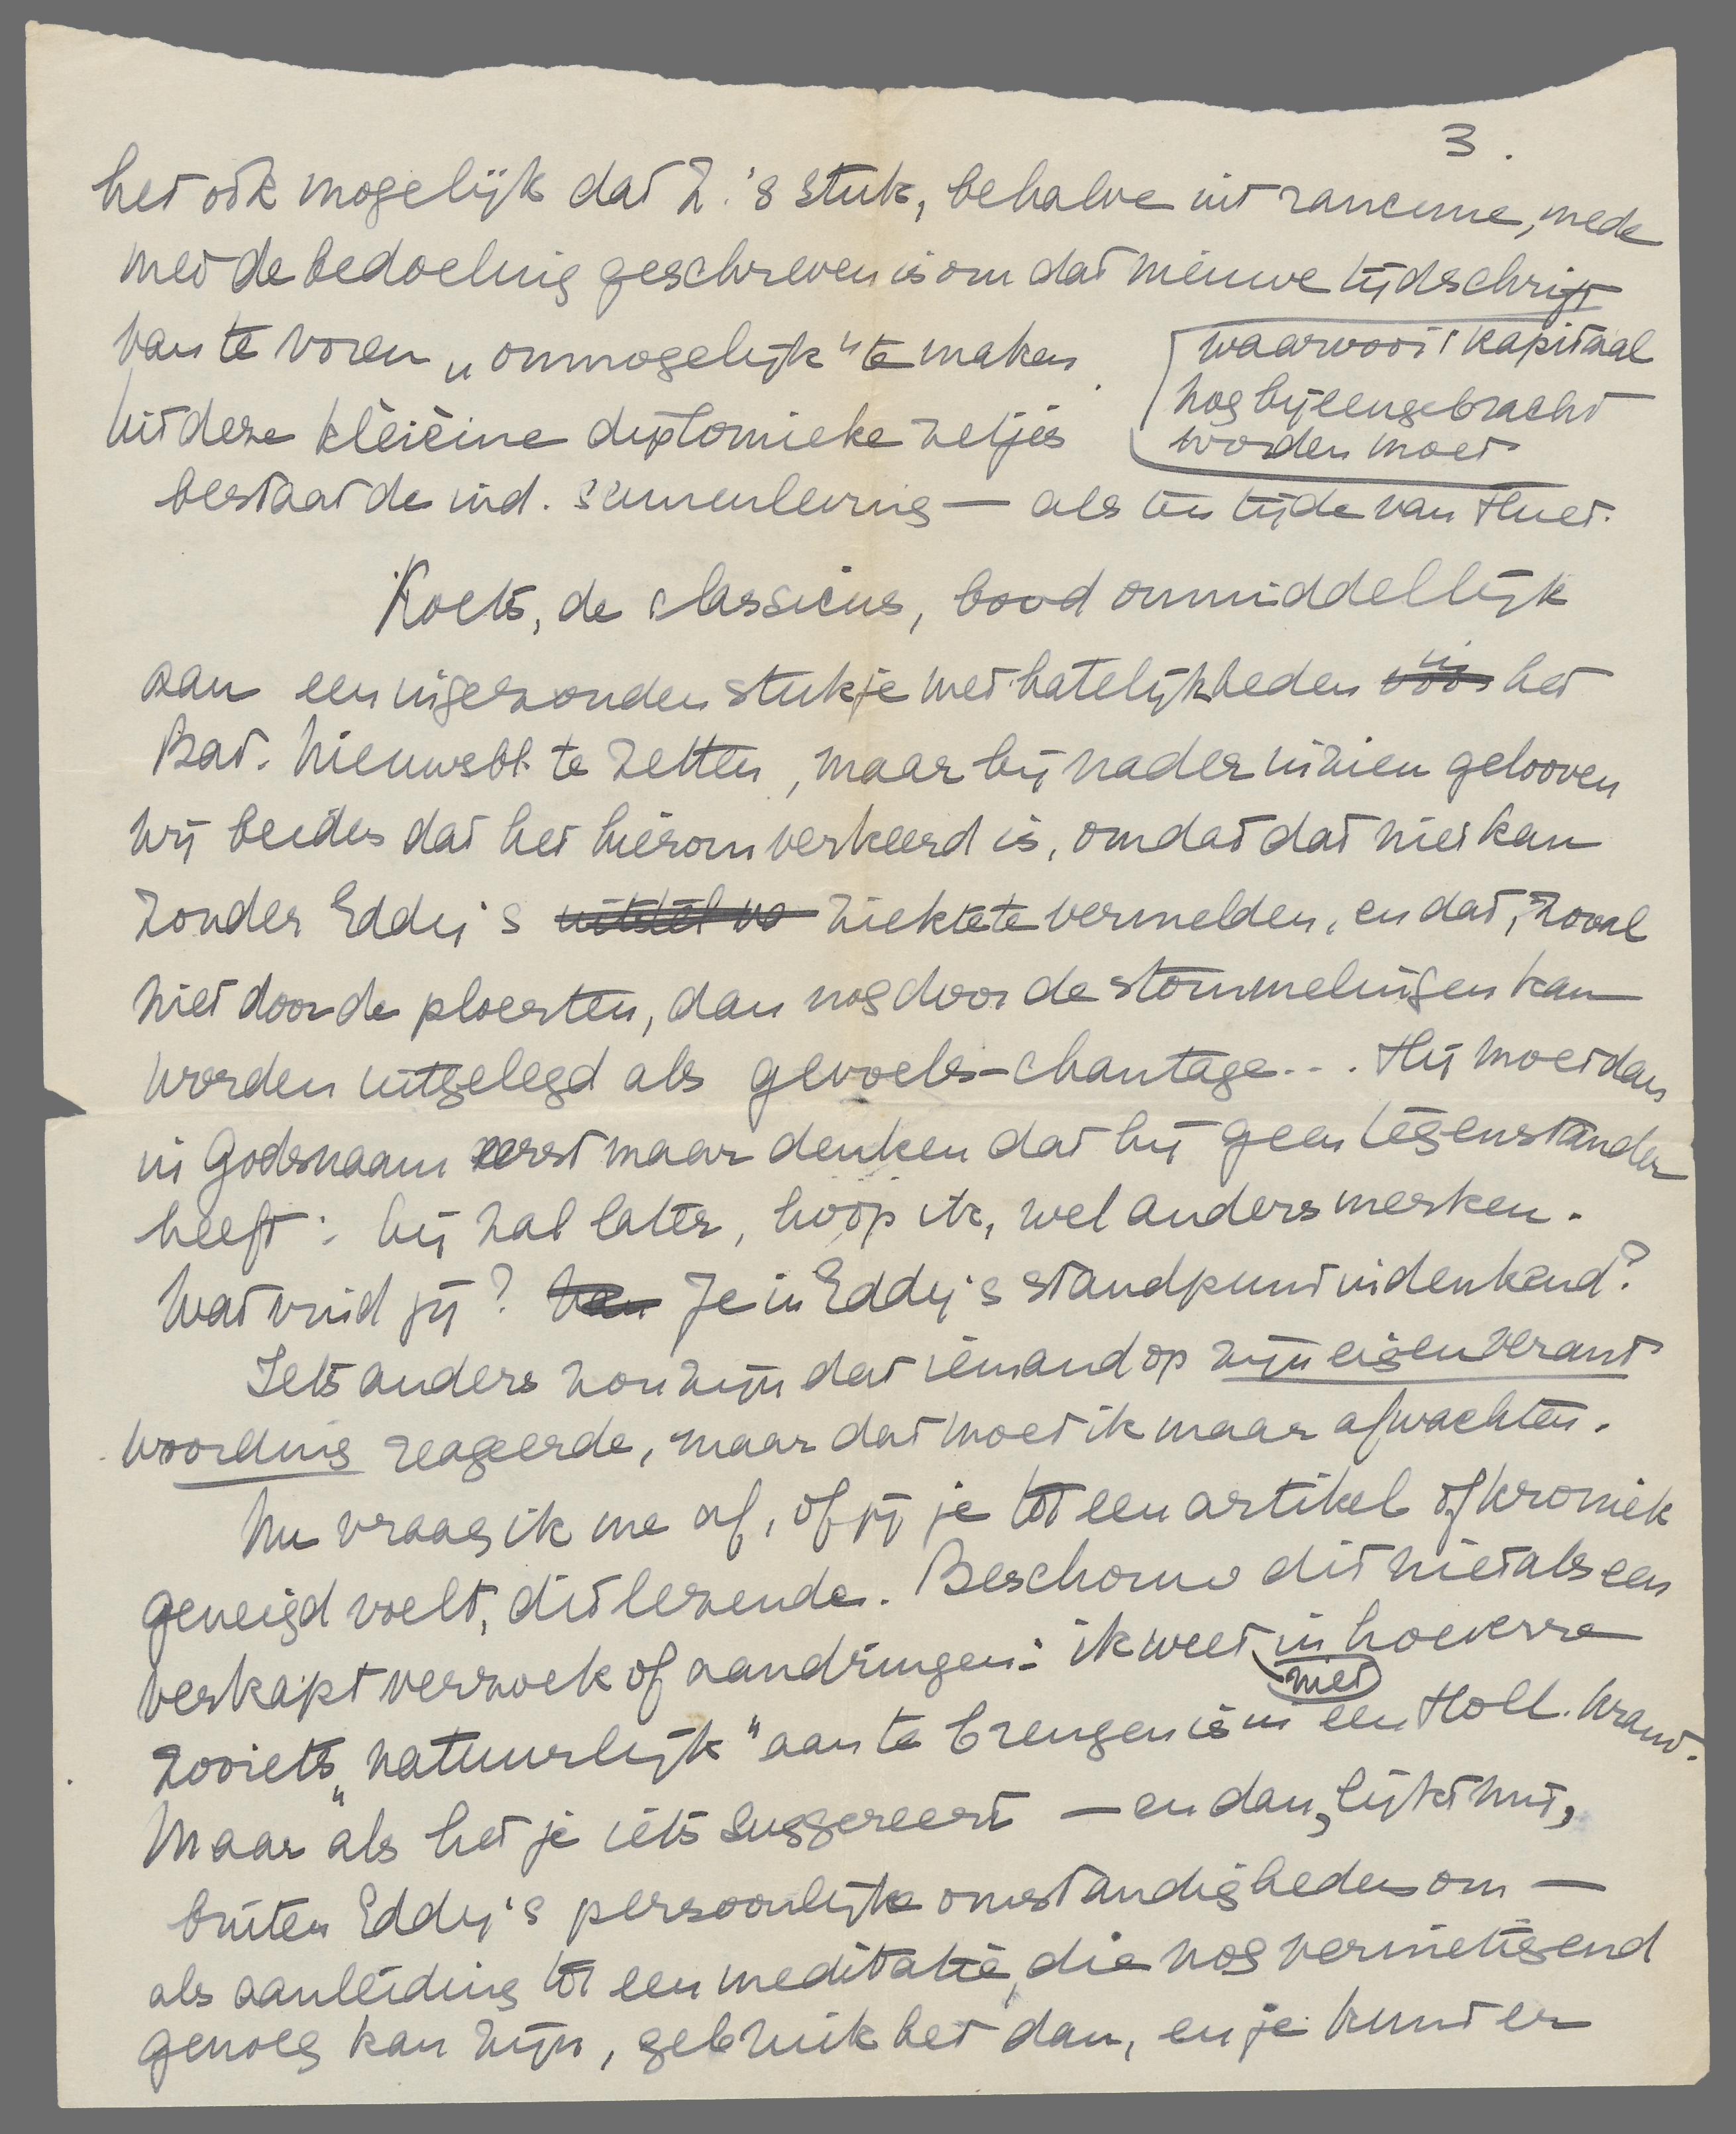 3.
het ook mogelijk dat Z.'s stuk, behalve uit rancune, mede
met de bedoeling geschreven is om dat nieuwe tijdschrift
van te voren „onmogelijk" te maken.
waarvoor 't kapitaal
nog bijeengebracht
worden moet
Uit deze kleine diplomieke zetjes
bestaat de ind. samenleving — als ten tijde van Huet.
Koets, de classicus, bood onmiddellijk
aan een ingezonden stukje met hatelijkheden vóór in het
Bat. Nieuwsbl. te zetten, maar bij nader inzien gelooven
wij beiden dat het hierom verkeerd is, omdat dat niet kan
zonder Eddy's uitstel va ziekte te vermelden, en dat, zooal
niet door de ploerten, dan nog door de stommelingen kan
worden uitgelegd als gevoels-chantage... Hij moet dan
in Godsnaam eerst maar denken dat hij geen tegenstander
heeft: hij zal later, hoop ik, wel anders merken.
Wat vind jij? Van Je in Eddy's standpunt indenkend?
Iets anders zou zijn dat iemand op zijn eigen verant-
woording reageerde, maar dat moet ik maar afwachten.
Nu vraag ik me af, of jij je tot een artikel of kroniek
geneigd voelt, dit lezende. Beschouw dit niet als een
verkapt verzoek of aandringen: ik weet niet in hoeverre
zooiets „natuurlijk" aan te brengen is in een Holl. krant.
Maar als het je iets suggereert — en dan, lijkt mij,
buiten Eddy's persoonlijke omstandigheden om —
als aanleiding tot een meditatie, die nog vernietigend
genoeg kan zijn, gebruik het dan, en je kunt er